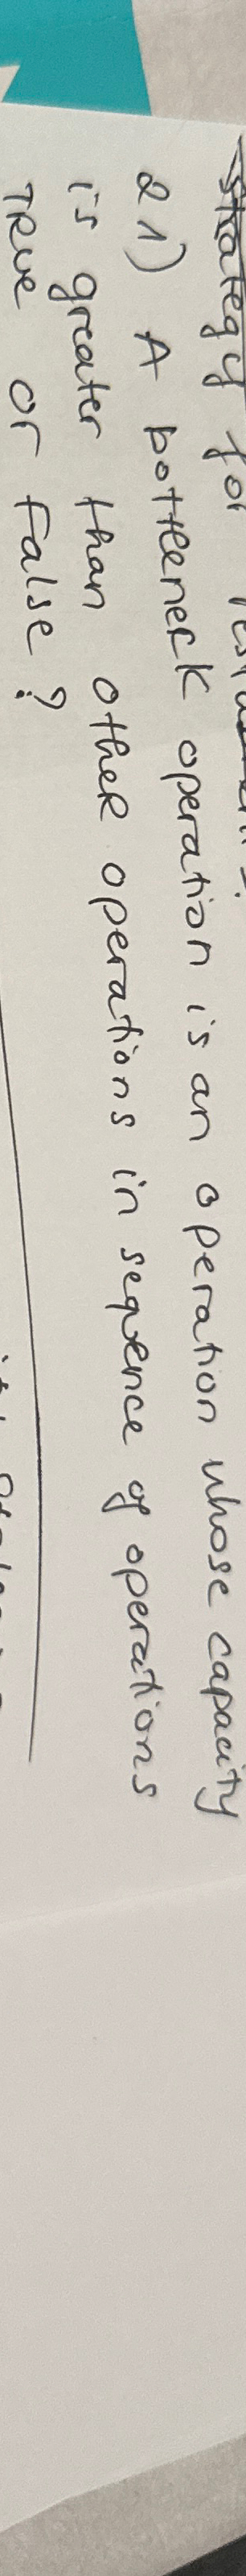 strategy for
21) A bottleneck operation is an operation whose capacity
is greater than other operations in sequence of operations
TRue or false?